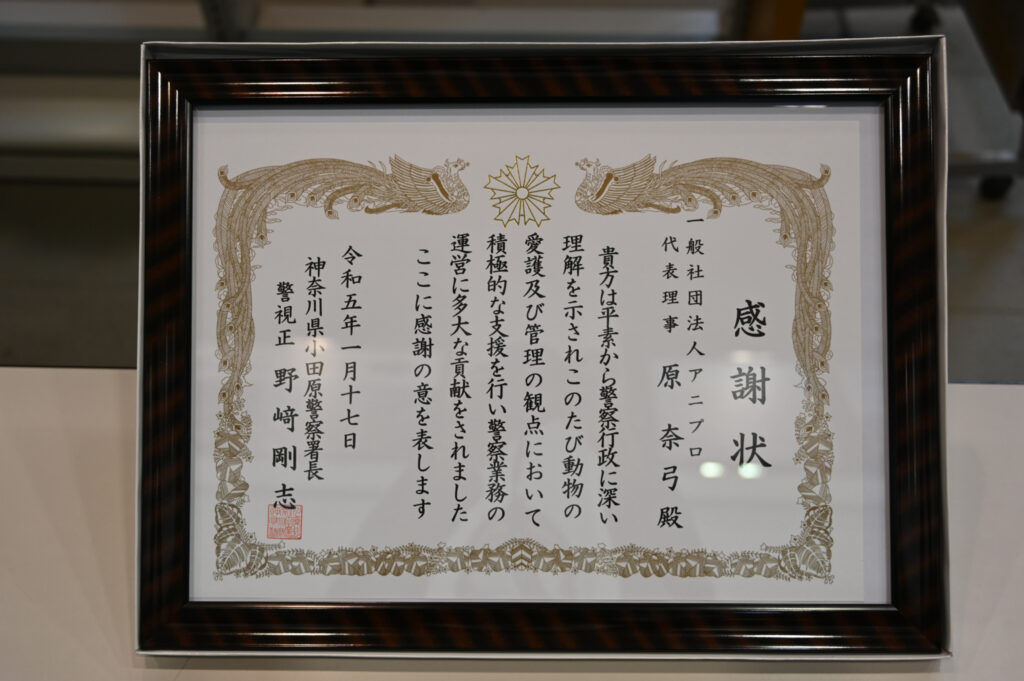 感謝状
一般社団法人アニプロ
代表理事 原奈弓殿
貴方は平素から警察行政に深い
理解を示されこのたび動物の
愛護及び管理の観点において
積極的な支援を行い警察業務の
運営に多大な貢献をされました
ここに感謝の意を表します
令和五年一月十七日
神奈川県小田原警察署長
警視正 野﨑剛志